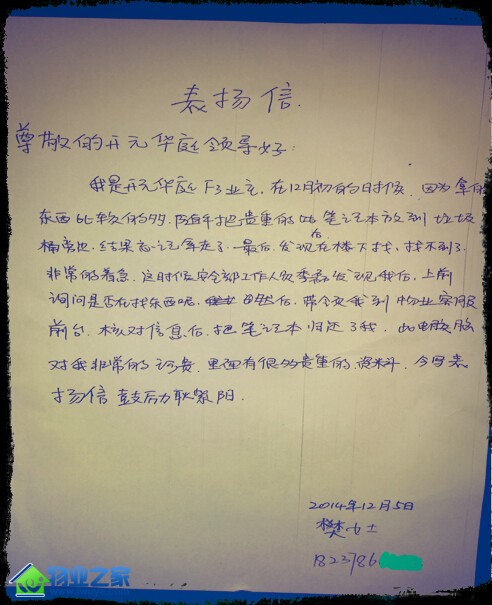 表扬信.
尊敬的开元华庭领导好:
我是开元华庭F3业主,在12月初的时候,因为拿的
东西比较的多,随手把贵重的 笔记本放到垃圾
桶旁边,结果忘记拿走了.最后,发现后在楼下找,找不到了
非常的着急,这时候安全部工作人员 发现我后,上前
询问是否在找东西呢, 后,带令我到物业客服
前台,核对信息后,把笔记本归还了我,此电脑
对我非常的珍贵,里面有很多贵重的资料,今写表
扬信鼓励耿 阳.
2014年12月5日
樊女士
1823786
物业之家